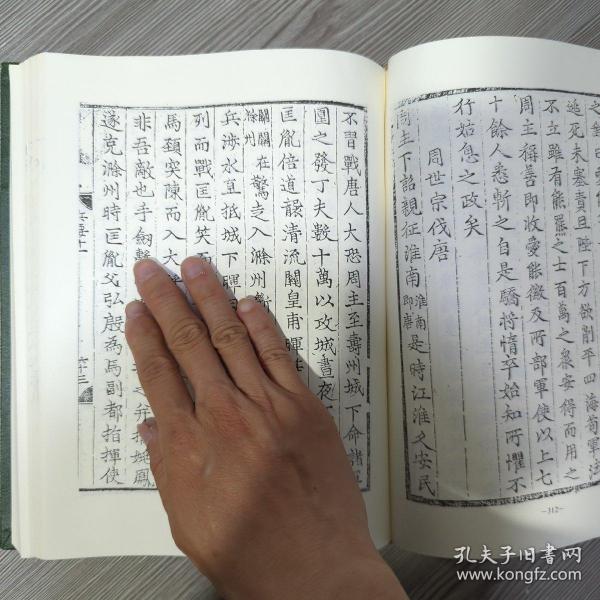 逃死未塞責且陛下方欲削平四海苟軍法
不立雖有熊羆之士百萬之衆安得而用之
周主稱善即收愛能徽及所部軍使以上七
十餘人悉斬之自是驕將惰卒始知所懼不
行姑息之政矣
周世宗伐唐
周主下詔親征淮南淮南即唐是時江淮久安民
-312-
不習戰唐人大恐周主至壽州城下命諸軍
圍之發丁夫數十萬以攻城晝夜
匡胤倍道襲清流關皇甫暉
關在滁州驚走入滁州斷
兵涉水直抵城下暉曰
列而戰匡胤笑而
馬頸突陳而入大
非吾敵也手劍擊之并擒姚鳳
遂克滁州時匡胤父弘殷為馬副都指揮使
孔夫子旧书网
www.kongfz.com